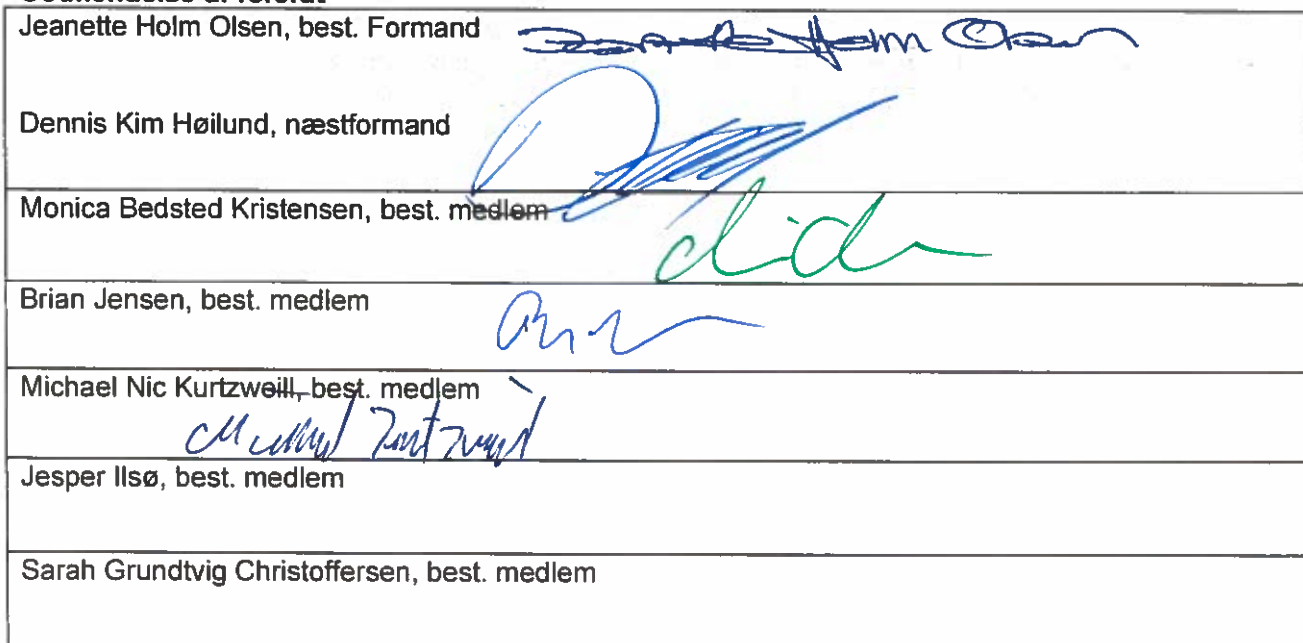 Jeanette Holm Olsen, best. Formand
Holm Olsen
Dennis Kim Høilund, næstformand
Monica Bedsted Kristensen, best. medlem
Brian Jensen, best. medlem
Michael Nic Kurtzweill, best. medlem
Jesper Ilsø, best. medlem
Sarah Grundtvig Christoffersen, best. medlem